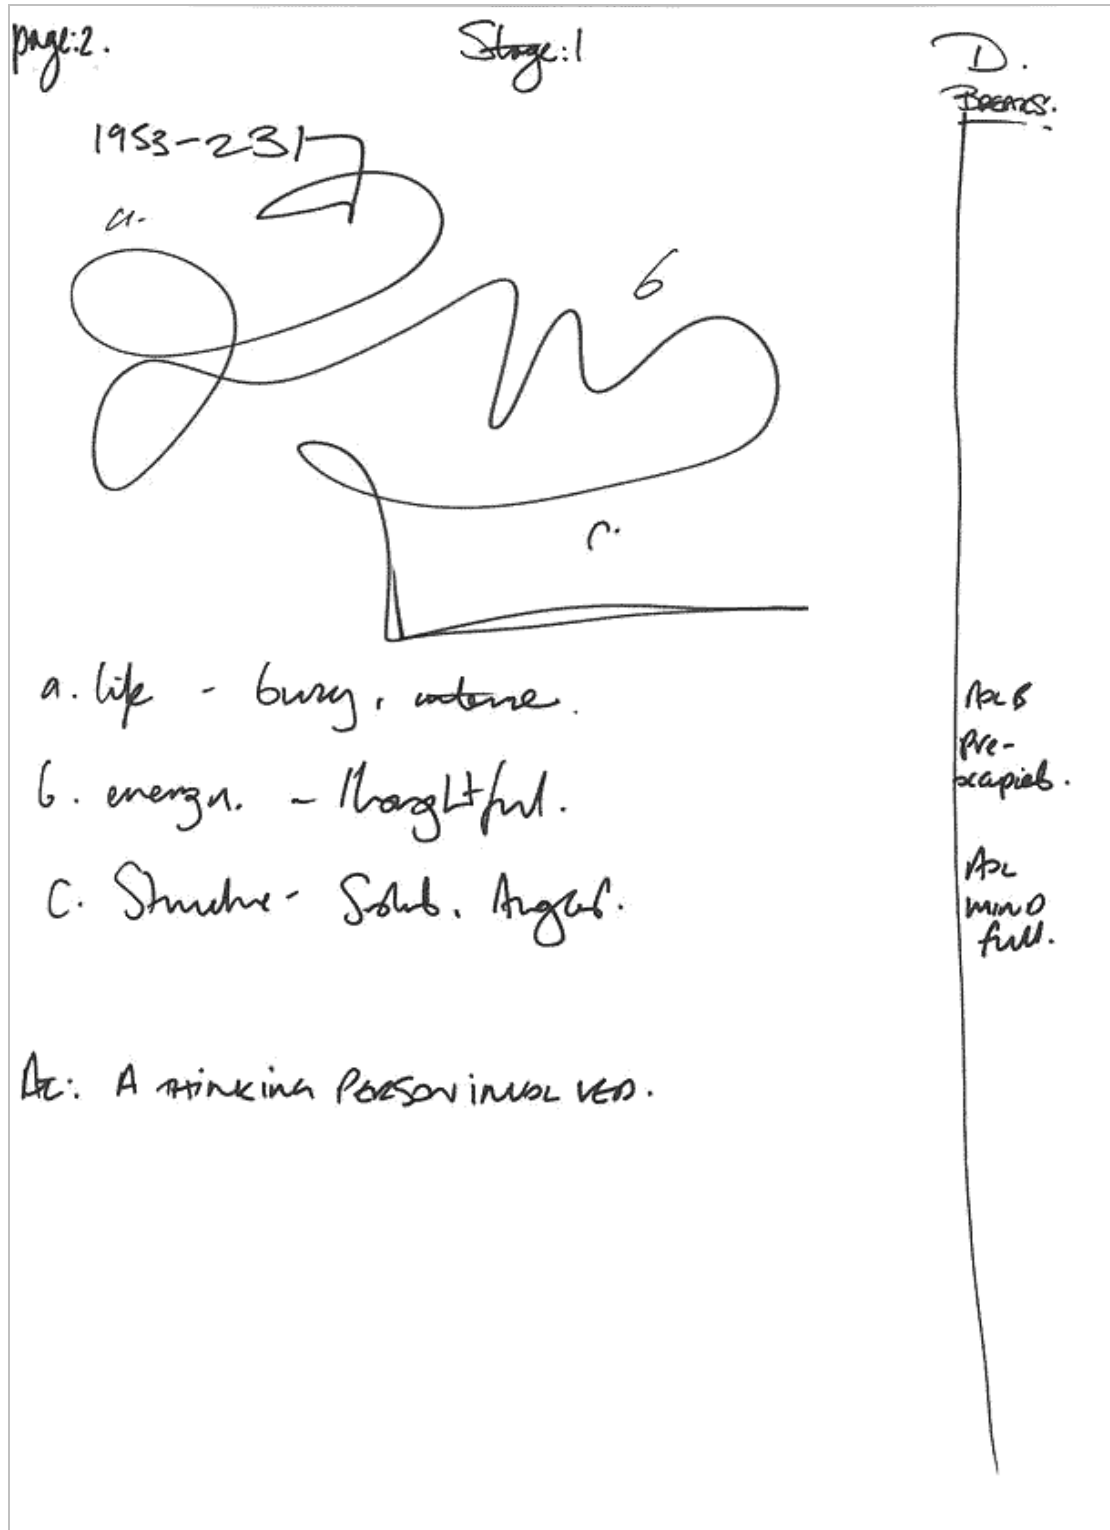 page: 2.
Stage: 1
D.
Breaks.
1953-231
a.
b
c.
a. life - busy, intense.
b. energy. - thoughtful.
C. Structure - Solid. Angled.
AOL B
Pre-
occupied.
AOL
MIND
full.
A THINKING PERSON INVOLVED.